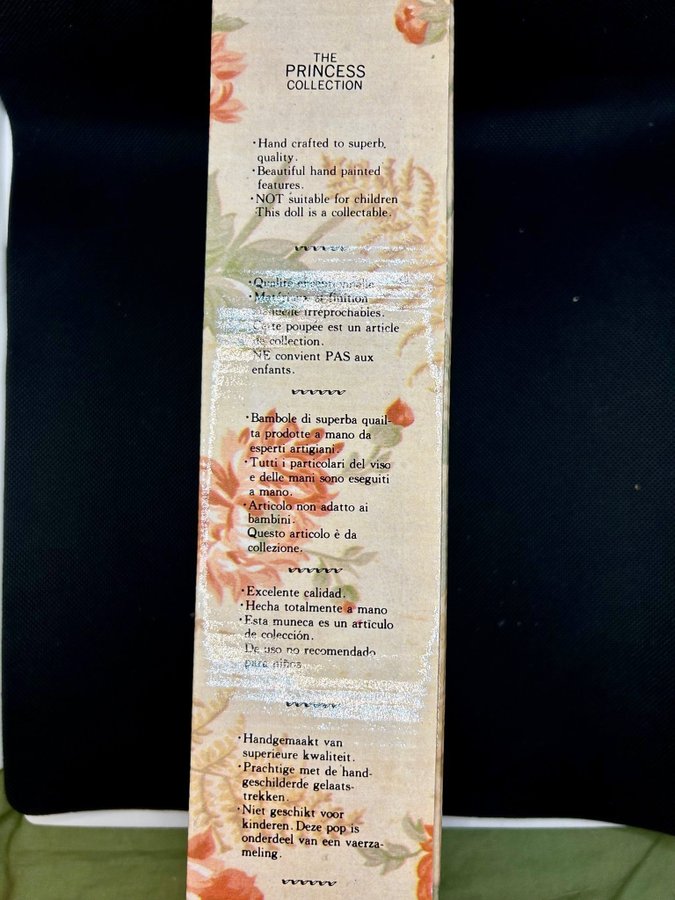 THE
PRINCESS
COLLECTION
·Hand crafted to superb.
quality.
·Beautiful hand painted
features.
·NOT suitable for children
This doll is a collectable.
·Qualité
finition
irreprochables.
poupee est un article
de collection.
NE convient PAS aux
enfants.
·Bambole di superba quail-
ta prodotte a mano da
esperti artigiani.
·Tutti i particolari del viso
e delle mani sono eseguiti
a mano.
·Articolo non adatto ai
bambini.
Questo articolo è da
collezione.
·Excelente calidad.
·Hecha totalmente a mano
·Esta muneca es un articulo
de colección.
De uso no recomendado
para niños.
·Handgemaakt van
superieure kwaliteit.
·Prachtige met de hand-
geschilderde gelaats-
trekken.
·Niet geschikt voor
kinderen. Deze pop is
onderdeel van een vaerza-
meling.